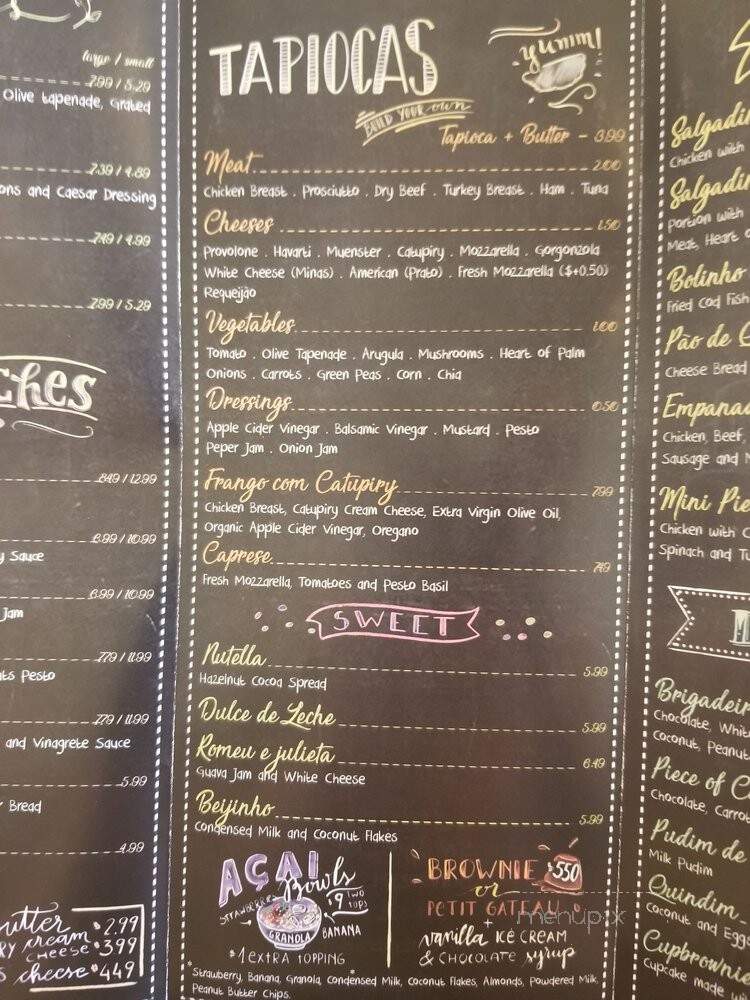 large / small
7.99 / 5.29
Olive tapenade, Grated
7.39 / 4.89
ons and Caesar Dressing
7.49 / 4.99
7.99 / 5.29
ches
8.49 / 12.99
6.99 / 10.99
y Sauce
6.99 / 10.99
Jam
7.79 / 11.99
ts Pesto
7.79 / 11.99
and Vinagrete Sauce
5.99
Bread
4.99
utter $2.99
ry cream cheese $3.99
s cheese $4.49
TAPIOCAS
yumm!
BUILD YOUR OWN
Tapioca + Butter - 3.99
Meat 2.00
Chicken Breast . Prosciutto . Dry Beef . Turkey Breast . Ham . Tuna
Cheeses 1.50
Provolone . Havarti . Muenster . Catupiry . Mozzarella . Gorgonzola
White Cheese (Minas) . American (Prato) . Fresh Mozzarella ($+0.50)
Requeijão
Vegetables 1.00
Tomato . Olive Tapenade . Arugula . Mushrooms . Heart of Palm
Onions . Carrots . Green Peas . Corn . Chia
Dressings 0.50
Apple Cider Vinegar . Balsamic Vinegar . Mustard . Pesto
Peper Jam . Onion Jam
Frango com Catupiry 7.99
Chicken Breast, Catupiry Cream Cheese, Extra Virgin Olive Oil,
Organic Apple Cider Vinegar, Oregano
Caprese 7.49
Fresh Mozzarella, Tomatoes and Pesto Basil
SWEET
Nutella 5.99
Hazelnut Cocoa Spread
Dulce de Leche 5.99
Romeu e julieta 6.49
Guava Jam and White Cheese
Beijinho 5.99
Condensed Milk and Coconut Flakes
AÇAI Bowls
$9 TWO TOPS
STRAWBERRY
GRANOLA
BANANA
$1 EXTRA TOPPING
BROWNIE $5.50
or
PETIT GATEAU
+
vanilla ICE CREAM
& CHOCOLATE syrup
*Strawberry, Banana, Granola, Condensed Milk, Coconut Flakes, Almonds, Powdered Milk,
Peanut Butter Chips.
Salgadin
Chicken with
Salgadin
Portion with
Meat, Heart o
Bolinho
Fried Cod Fish
Pão de
Cheese Bread
Empana
Chicken, Beef
Sausage and
Mini Pie
Chicken with C
Spinach and Tu
Brigadeir
Chocolate, Whit
Coconut, Peanut
Piece of C
Chocolate, Carrot
Pudim de
Milk Pudim
Quindim
Coconut and Eggs
Cupbrownie
Cupcake made w
menupix